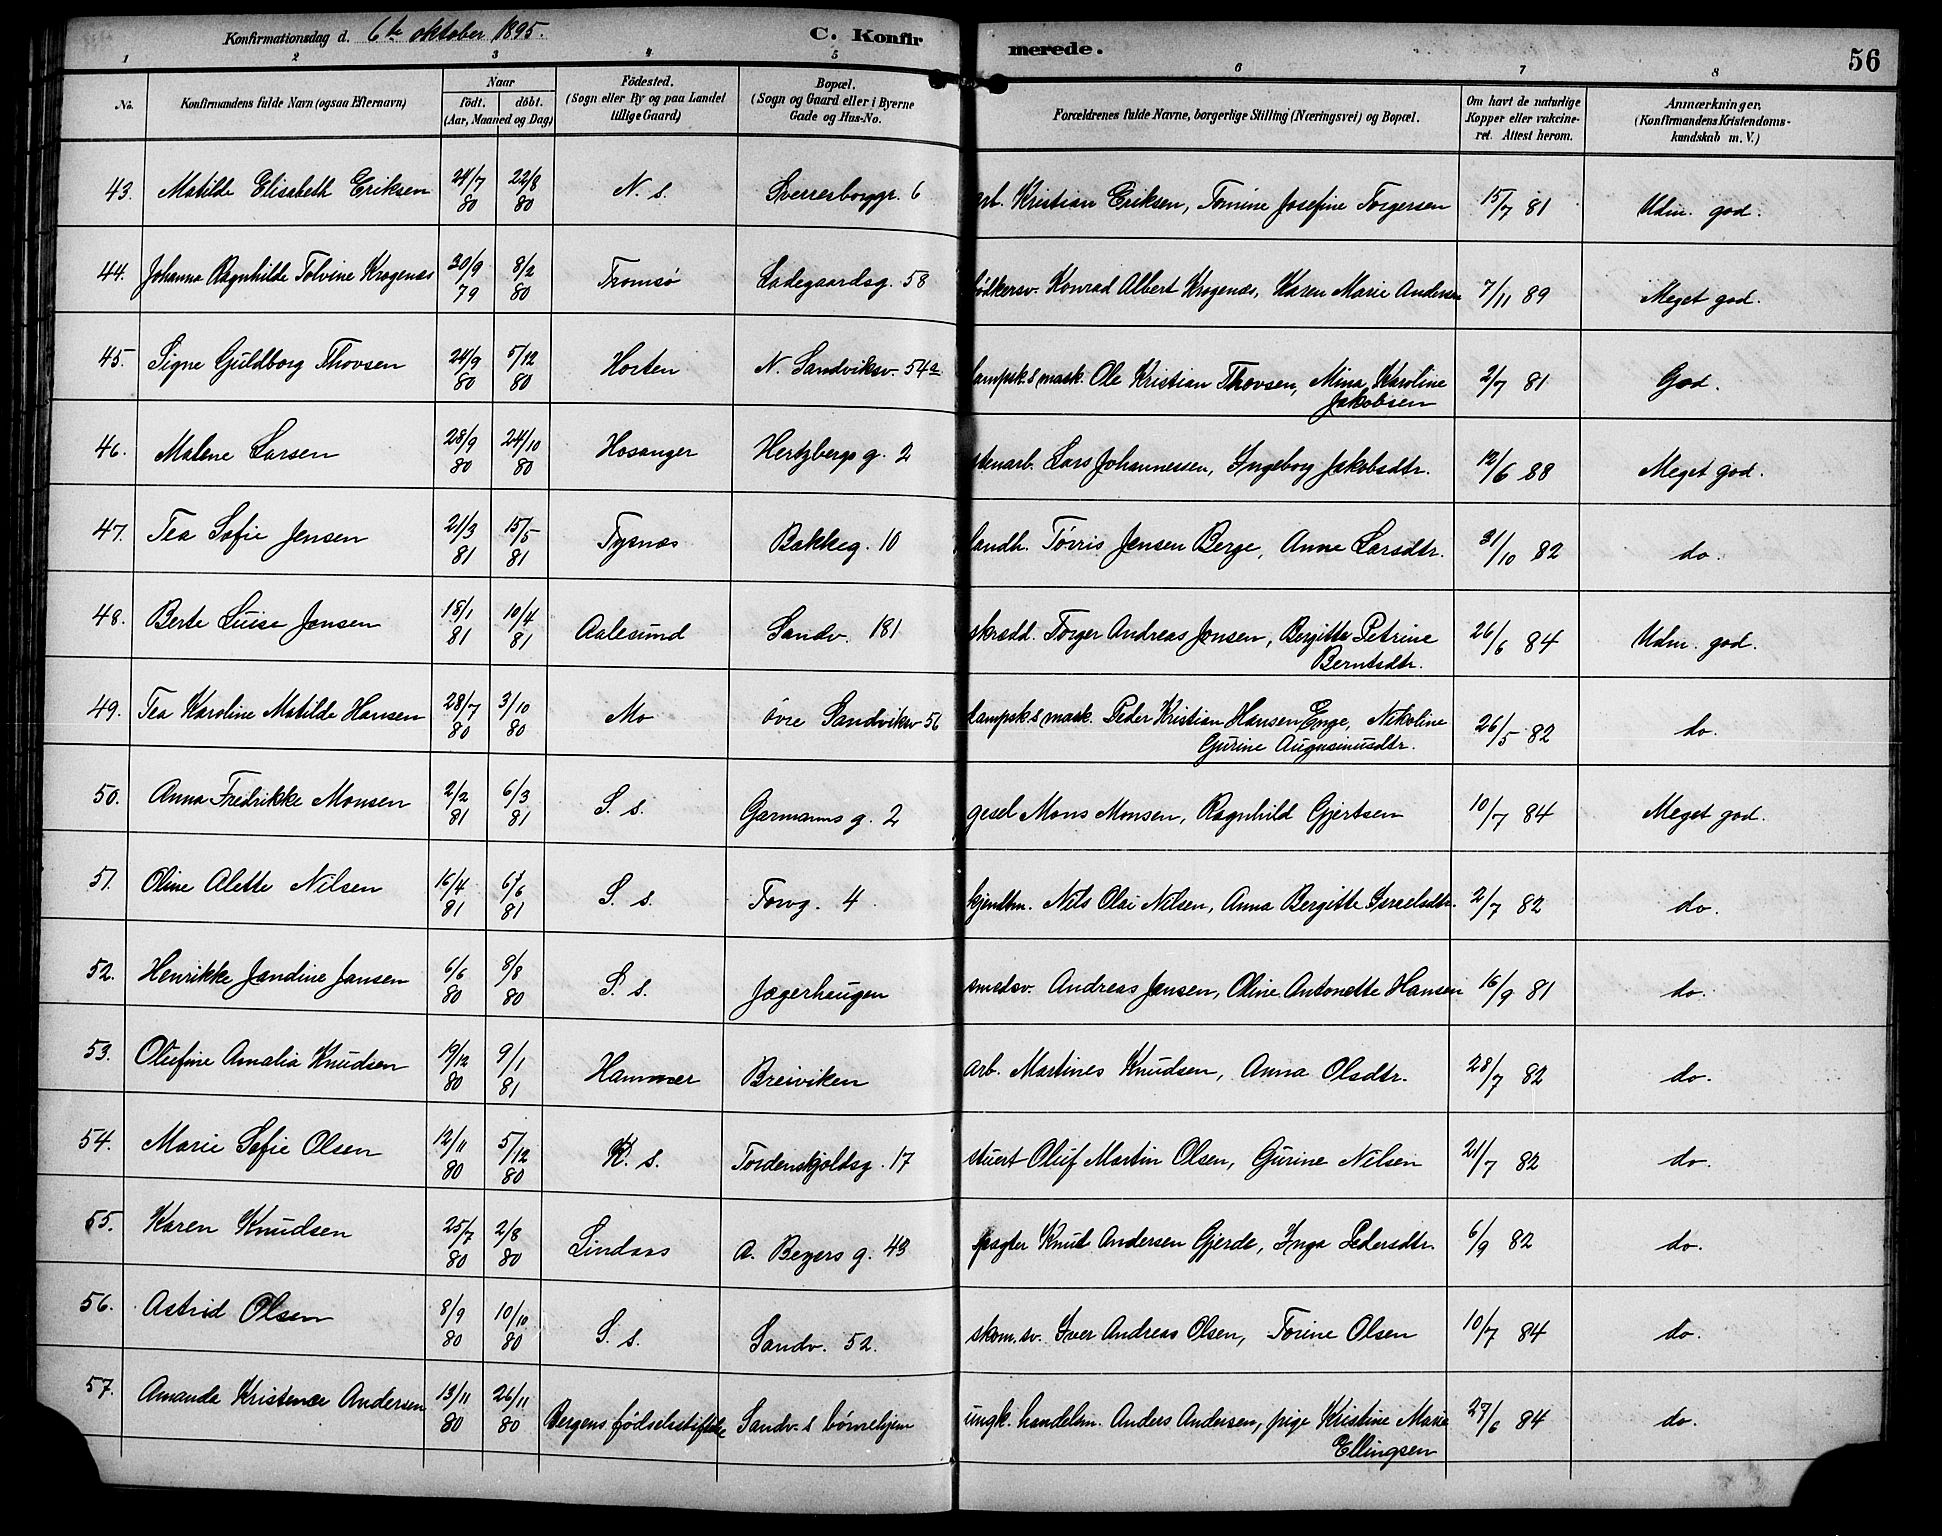 Konfirmationsdag d. 6te oktober 1895.
C. Konfirmerede.
56
1 2 3 4 5 6 7 8
No. Konfirmandens fulde Navn (ogsaa Efternavn) Naar født. døbt. (Aar, Maaned og Dag) Fødested. (Sogn eller By og paa Landet tillige Gaard) Bopæl. (Sogn og Gaard eller i Byerne Gade og Hus-No. Forældrenes fulde Navne, borgerlige Stilling (Næringsvei) og Bopæl. Om havt de naturlige Kopper eller vakcineret. Attest herom. Anmærkninger. (Konfirmandens Kristendomskundskab m. V.)
43. Matilde Elisabeth Eriksen 24/7 80 22/8 80 N. s. Sverresborggr. 6 arb. Kristian Eriksen, Tomine Josefine Torgersen 15/7 81 Udm. god.
44. Johanna Ragnhilde Tolvine Kragenæs 30/9 79 8/2 80 Tromsø Ladegaardsg. 58 bødkersv. Konrad Albert Kragenæs, Karen Marie Andersen 7/11 89 Meget god.
45. Signe Guldborg Thovsen 24/9 80 5/12 80 Horten N. Sandviksv. 54a dampsk.s mask. Ole Kristian Thovsen, Mina Karoline Jakobsen 2/7 81 God.
46. Malene Larsen 28/9 80 24/10 80 Hosanger Hertzbergs g. 2 stenarb. Lars Johannessen, Ingeborg Jakobsdtr. 12/6 88 Meget god.
47. Tea Sofie Jensen 21/3 81 15/5 81 Tysnæs Bakkeg. 10 landh. Tørris Jensen Berge, Anne Larsdtr. 31/10 82 do.
48. Berte Luise Jensen 18/1 81 10/4 81 Aalesund Sandv. 181 skrædd. Torger Andreas Jensen, Bergitte Petrine Berntsdtr. 26/6 84 Udm. god.
49. Tea Karoline Matilde Hansen 28/7 80 3/10 80 Mo øvre Sandviksv 56 dampsk.s mask. Peder Kristian Hansen Enge, Nikoline Gurine Augusinusdtr. 26/5 82 do.
50. Anna Fredrikke Monsen 2/2 81 6/3 81 S. s. Garmanns g. 2 gesel Mons Monsen, Ragnhild Gjertsen 10/7 84 Meget god.
51. Oline Alette Nilsen 16/4 81 6/6 81 S. s. Torvg. 4 kjendtm. Nils Olai Nilsen, Anna Bergitte Isralsdtr. 2/7 82 do.
52. Henrikke Jandine Jansen 6/6 80 8/8 80 S. s. Jægerhaugen smedsv. Andreas Jansen, Oline Antonette Hansen 16/9 81 do.
53. Olufine Amalia Knudsen 19/12 80 9/1 81 Hammer Breiviken arb. Martines Knudsen, Anna Olsdtr. 28/7 82 do.
54. Marie Sofie Olsen 12/11 80 5/12 80 K. s. Tordenskjoldsg. 17 stuert Oluf Martin Olsen, Gurine Nilsen 21/7 82 do.
55. Karen Knudsen 25/7 80 2/8 80 Lindaas A. Beyers g. 43 fragter Knut Andersen Gjerde, Inga Pedersdtr. 6/9 82 do.
56. Astrid Olsen 8/9 80 10/10 80 S. s. Sandv. 52. skom.sv. Iver Andreas Olsen, Torine Olsen 10/7 84 do.
57. Amanda Kristence Andersen 13/11 80 26/11 80 Bergens fødselsstiftelse Sandv.s børnehjem ungk. handelm. Anders Andersen, pige Kristine Marie Ellingsen 27/6 84 do.